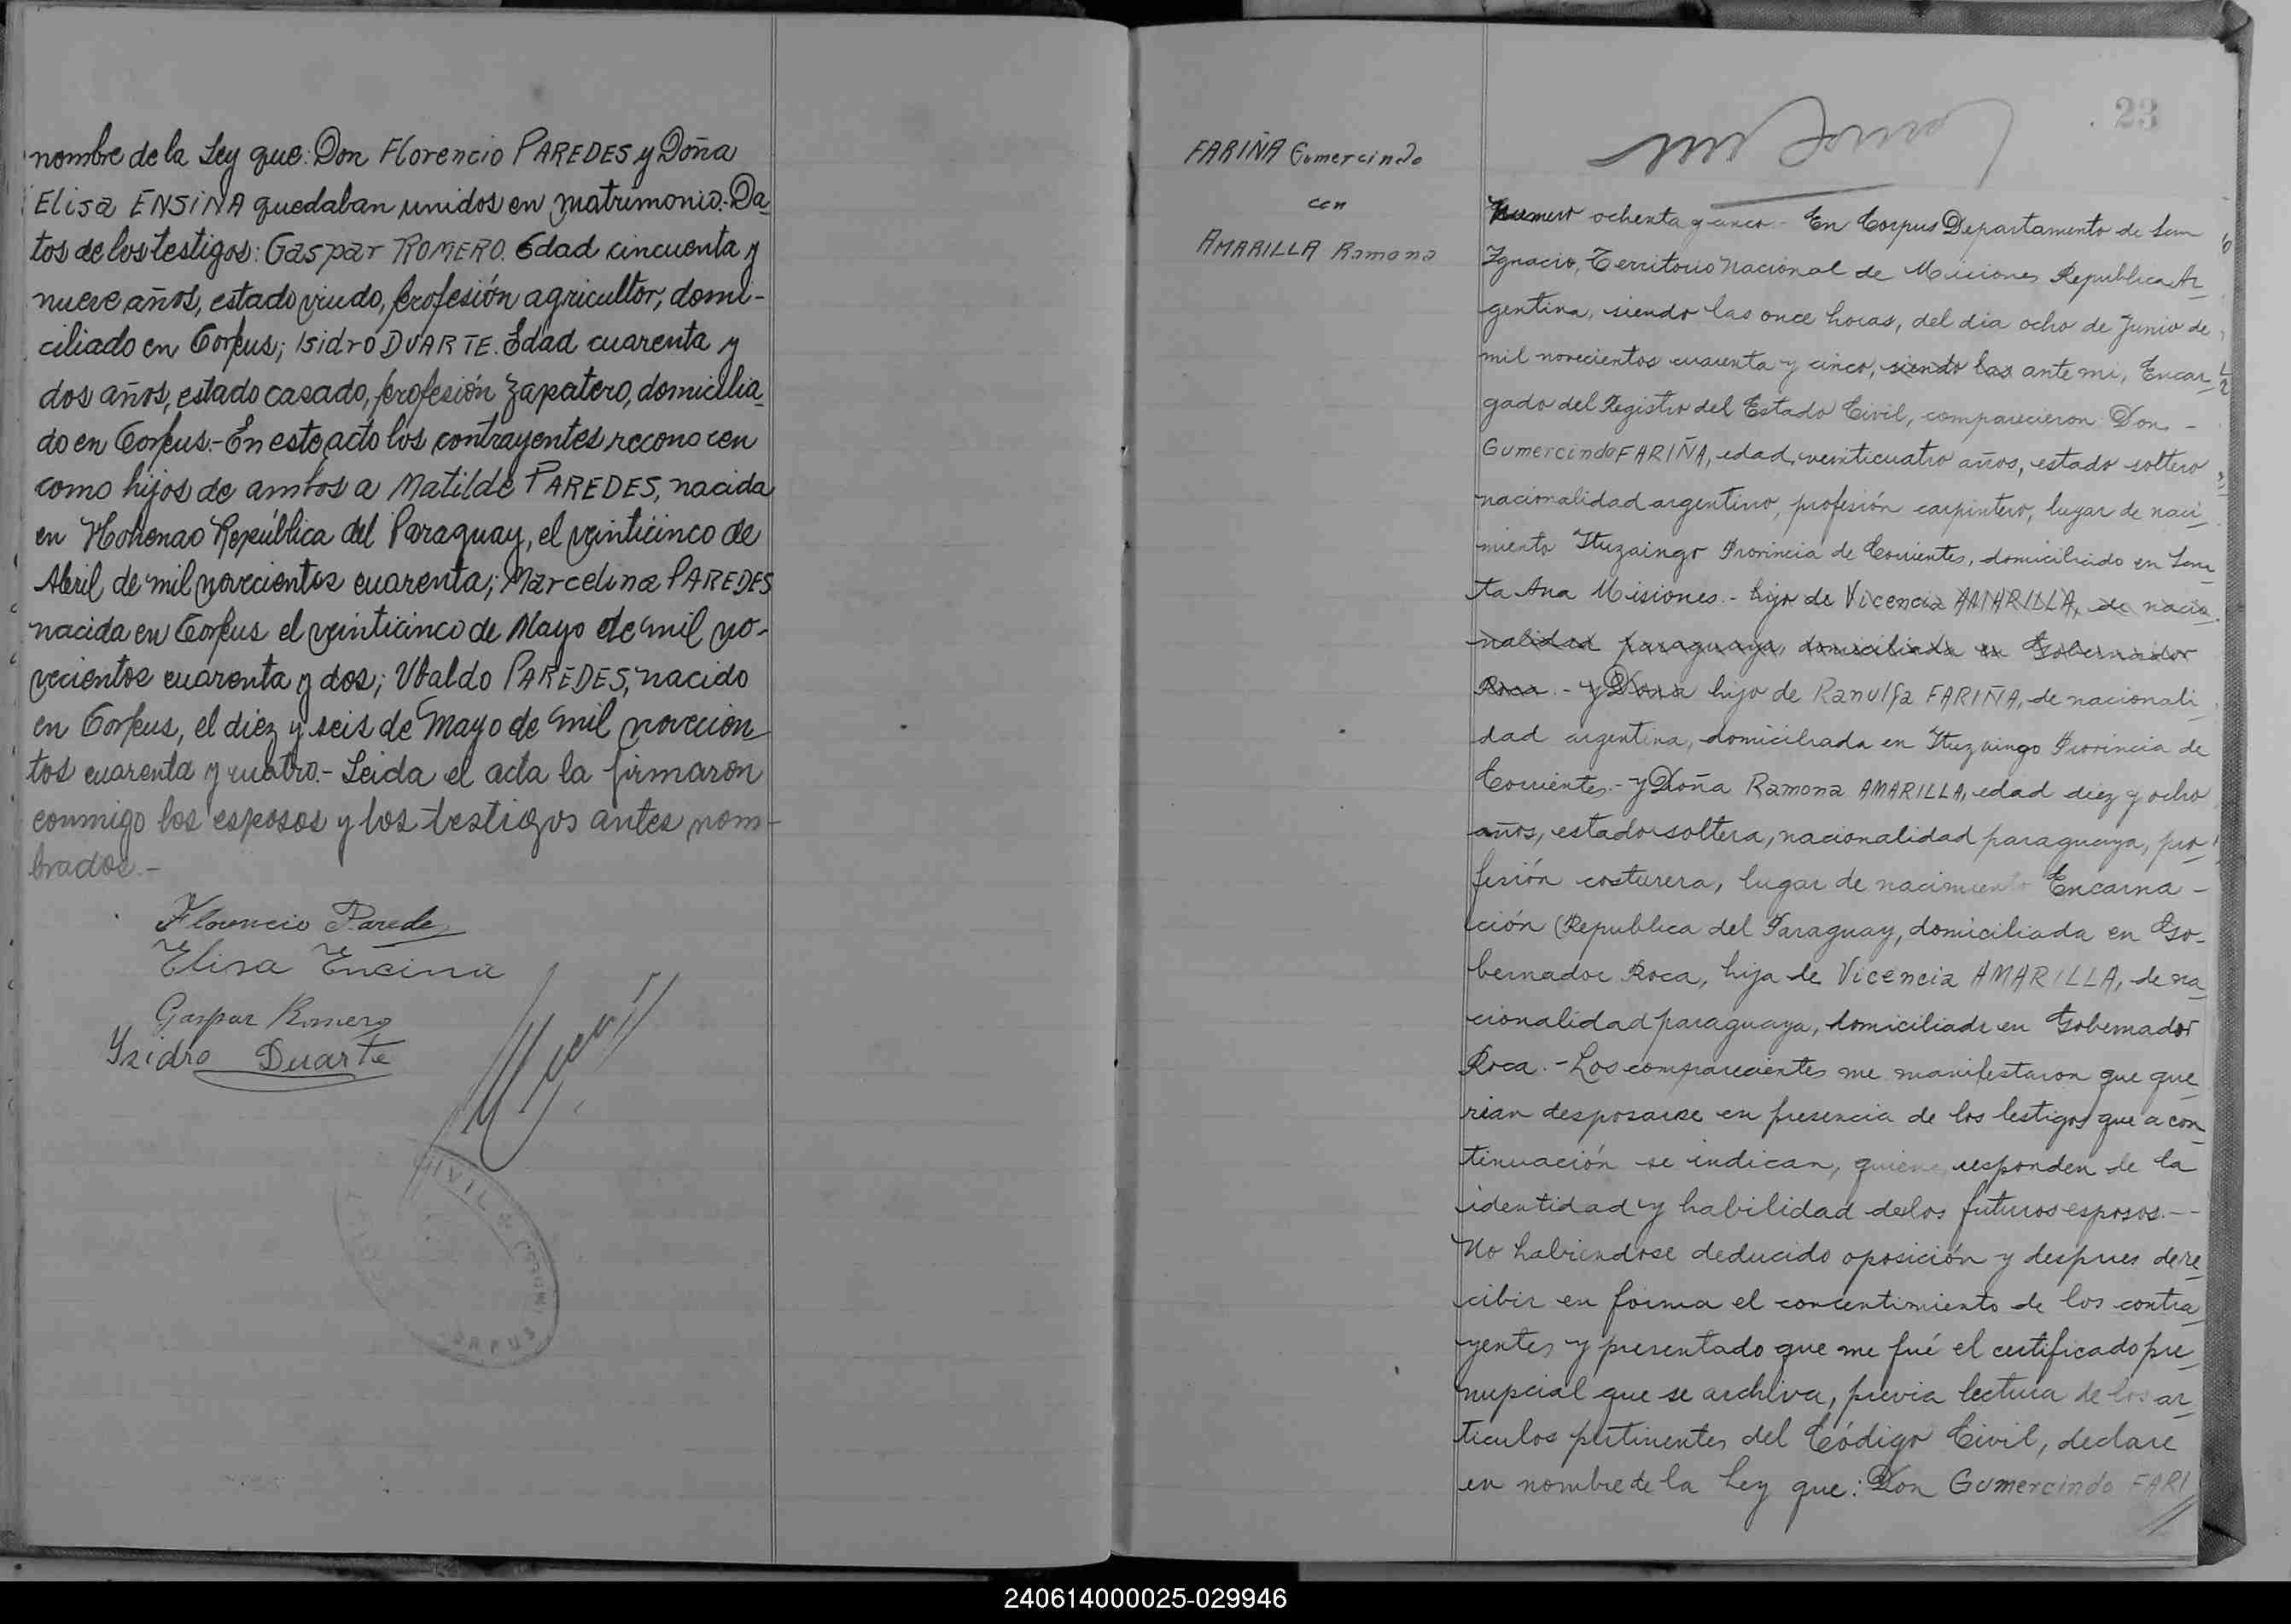 nombre de la Ley que: Don Florencio PAREDES y Doña
Elisa ENSINA quedaban unidos en matrimonio.- Da-
tos de los testigos: Gaspar ROMERO. Edad cincuenta y
nueve años, estado viudo, profesión agricultor, domi-
ciliado en Corpus; Isidro DUARTE. Edad cuarenta y
dos años, estado casado, profesión zapatero, domicilia-
do en Corpus.- En este acto los contrayentes reconocen
como hijos de ambos a Matilde PAREDES, nacida
en Hohenao República del Paraguay, el veinticinco de
Abril de mil novecientos cuarenta; Marcelina PAREDES
nacida en Corpus el veinticinco de Mayo de mil no-
vecientos cuarenta y dos; Ubaldo PAREDES, nacido
en Corpus, el diez y seis de Mayo de mil novecien-
tos cuarenta y cuatro.- Leida el acta la firmaron
conmigo los esposos y los testigos antes nom-
brados.-
Florencio Parede
Elisa Encina
Gaspar Romero
Isidro Duarte
CIVIL
CORPUS
23
FARIÑA Gumercindo
con
AMARILLA Ramona
Numero ochenta y cinco.- En Corpus Departamento de San
Ignacio, Territorio Nacional de Misiones Republica Ar-
gentina, siendo las once horas, del dia ocho de Junio de
mil novecientos cuarenta y cinco, siendo las ante mi, Encar-
gado del Registro del Estado Civil, comparecieron: Don -
Gumercindo FARIÑA, edad veinticuatro años, estado soltero
nacionalidad argentino, profesión carpintero, lugar de naci-
miento Ituzaingo Provincia de Corrientes, domiciliado en San-
ta Ana Misiones.- hijo de Vicencia AMARILLA, de nacio-
nalidad paraguaya, domiciliada en Gobernador
Roca.- y Doña hijo de Ranulfa FARIÑA, de nacionali-
dad argentina, domiciliada en Ituzaingo Provincia de
Corrientes.- y Doña Ramona AMARILLA, edad diez y ocho
años, estado soltera, nacionalidad paraguaya, pro-
fesión costurera, lugar de nacimiento Encarna-
ción (Republica del Paraguay, domiciliada en Go-
bernador Roca, hija de Vicencia AMARILLA, de na-
cionalidad paraguaya, domiciliada en Gobernador
Roca.- Los comparecientes me manifestaron que que-
rian desposarse en presencia de los testigos que a con-
tinuación se indican, quienes responden de la
identidad y habilidad de los futuros esposos.--
No habiendose deducido oposición y despues de re-
cibir en forma el concentimiento de los contra-
yentes y presentado que me fué el certificado pre-
nupcial que se archiva, previa lectura de los ar-
ticulos pertinentes del Código Civil, declare
en nombre de la Ley que: Don Gumercindo FARI
240614000025-029946